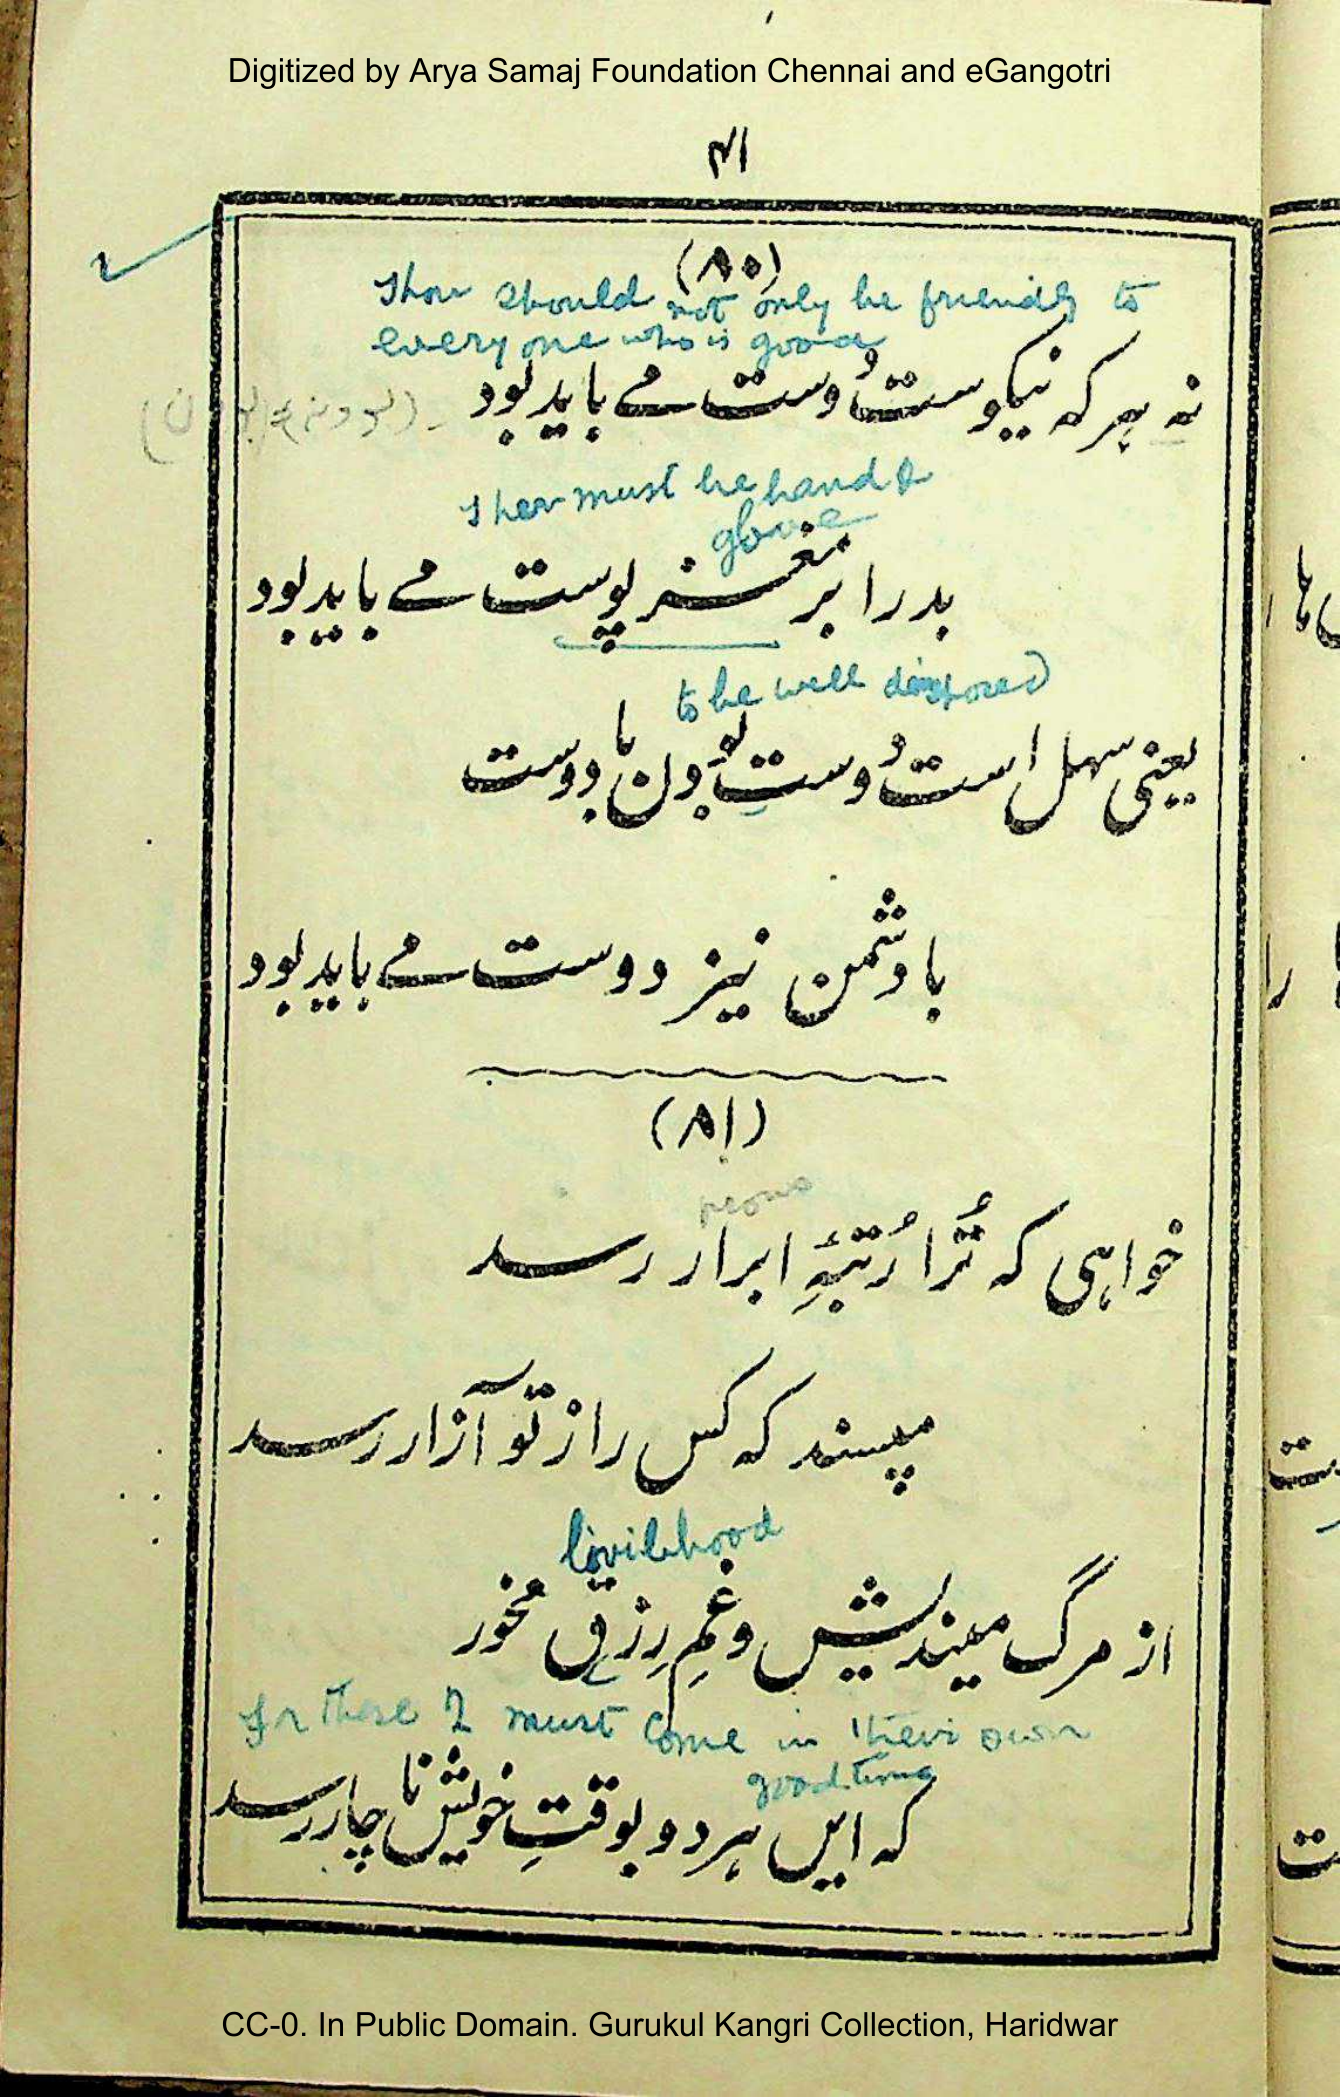 Digitized by Arya Samaj Foundation Chennai and eGangotri
۴۱
(۸۰)
Thou should not only be friendly to
every one who is good
نہ ہر کہ نیکوست دُوست مے باید بود
must be hand &
glove
بد را بر مغز پوست مے باید بود
to be well disposed
یعنی سہل است دُوستِ تو بُودن با دوست
با دشمن نیز دوست مے باید بود
(۸۱)
pious
خواہی کہ تُرا رُتبۂِ ابرار رسد
مپسند کہ کس را ز تو آزار رسد
livilihood
از مرگ میندیش و غمِ رِزق مخور
For these 2 must come in their own
good time
کہ ایں ہر دو بوقتِ خویش نا چار رسد
CC-0. In Public Domain. Gurukul Kangri Collection, Haridwar